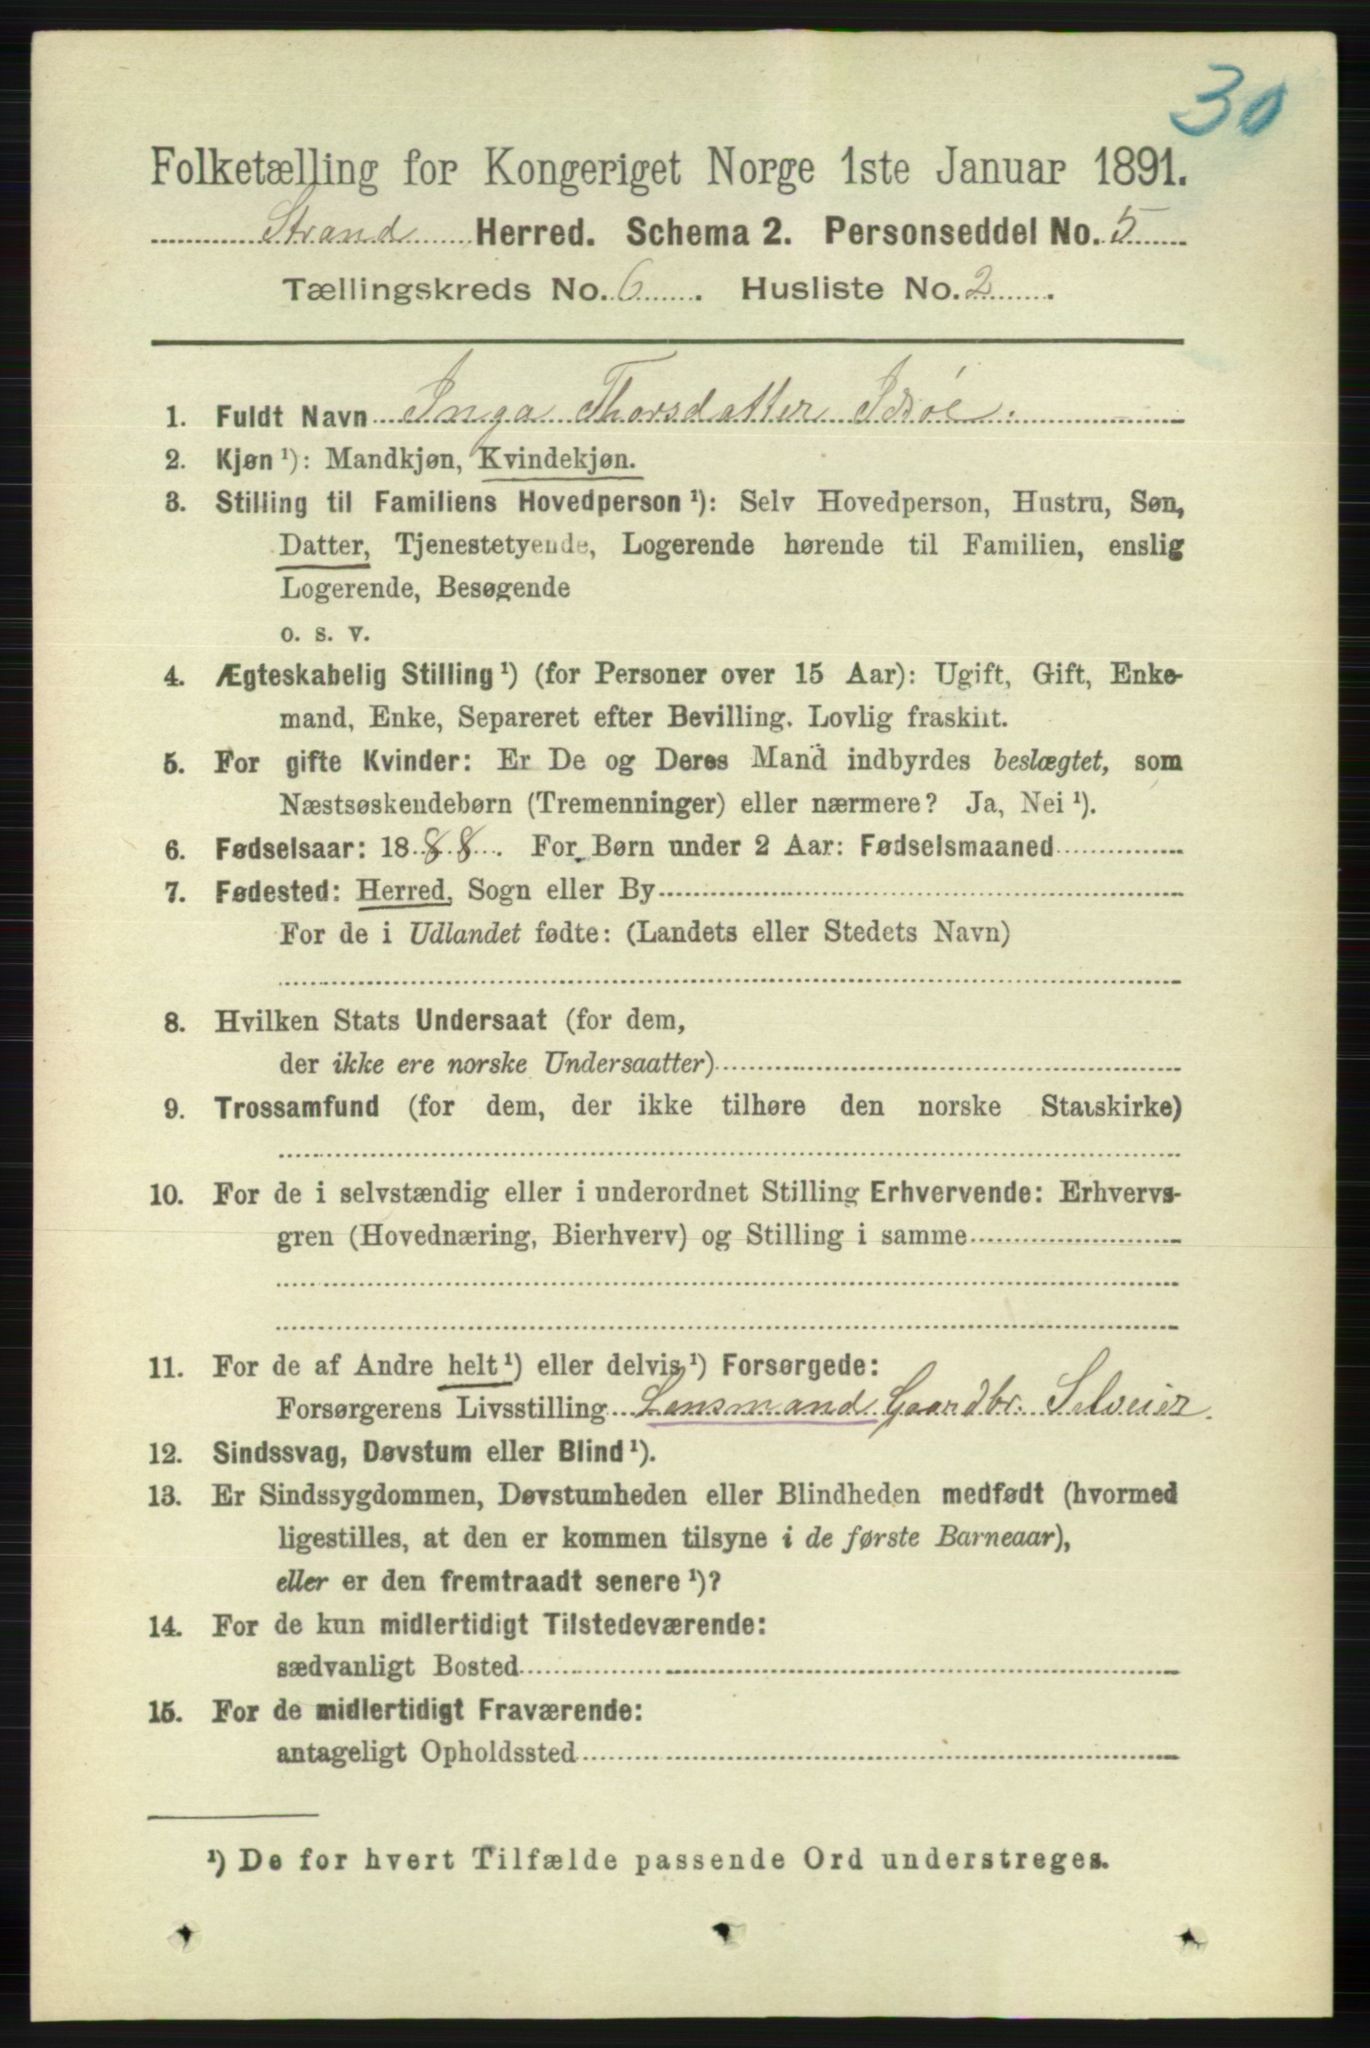 30
Folketælling for Kongeriget Norge 1ste Januar 1891.
Strand Herred. Schema 2. Personseddel No. 5
Tællingskreds No. 6. Husliste No. 2.
1. Fuldt Navn Inga Thorsdatter Idsöe.
2. Kjøn ¹): Mandkjøn, Kvindekjøn.
3. Stilling til Familiens Hovedperson ¹): Selv Hovedperson, Hustru, Søn,
Datter, Tjenestetyende, Logerende hørende til Familien, enslig
Logerende, Besøgende
o. s. v.
4. Ægteskabelig Stilling ¹) (for Personer over 15 Aar): Ugift, Gift, Enke-
mand, Enke, Separeret efter Bevilling. Lovlig fraskilt.
5. For gifte Kvinder: Er De og Deres Mand indbyrdes beslægtet, som
Næstsøskendebørn (Tremenninger) eller nærmere? Ja, Nei ¹).
6. Fødselsaar: 1888. For Børn under 2 Aar: Fødselsmaaned
7. Fødested: Herred, Sogn eller By
For de i Udlandet fødte: (Landets eller Stedets Navn)
8. Hvilken Stats Undersaat (for dem,
der ikke ere norske Undersaatter)
9. Trossamfund (for dem, der ikke tilhøre den norske Statskirke)
10. For de i selvstændig eller i underordnet Stilling Erhvervende: Erhvervs-
gren (Hovednæring, Bierhverv) og Stilling i samme
11. For de af Andre helt ¹) eller delvis ¹) Forsørgede:
Forsørgerens Livsstilling Lensmand Gaardbr. Selveier.
12. Sindssvag, Døvstum eller Blind ¹).
13. Er Sindssygdommen, Døvstumheden eller Blindheden medfødt (hvormed
ligestilles, at den er kommen tilsyne i de første Barneaar),
eller er den fremtraadt senere ¹)?
14. For de kun midlertidigt Tilstedeværende:
sædvanligt Bosted
15. For de midlertidigt Fraværende:
antageligt Opholdssted
¹) De for hvert Tilfælde passende Ord understreges.